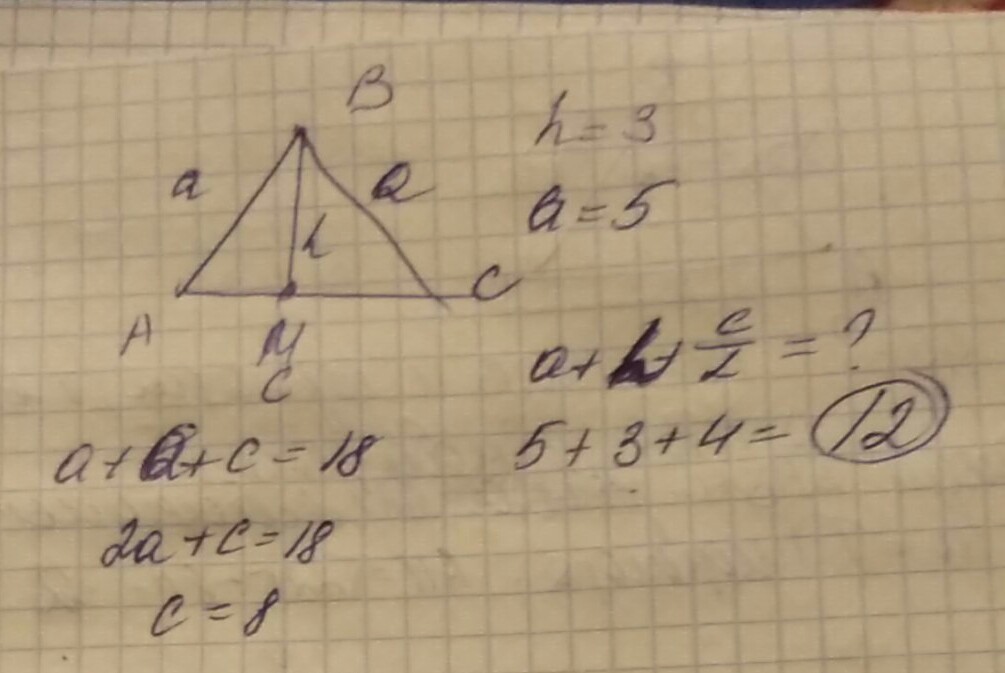 B
a
a
h
A
M
C
c
h = 3
a = 5
a + h + c/2 = ?
5 + 3 + 4 = 12
a + a + c = 18
2a + c = 18
c = 8